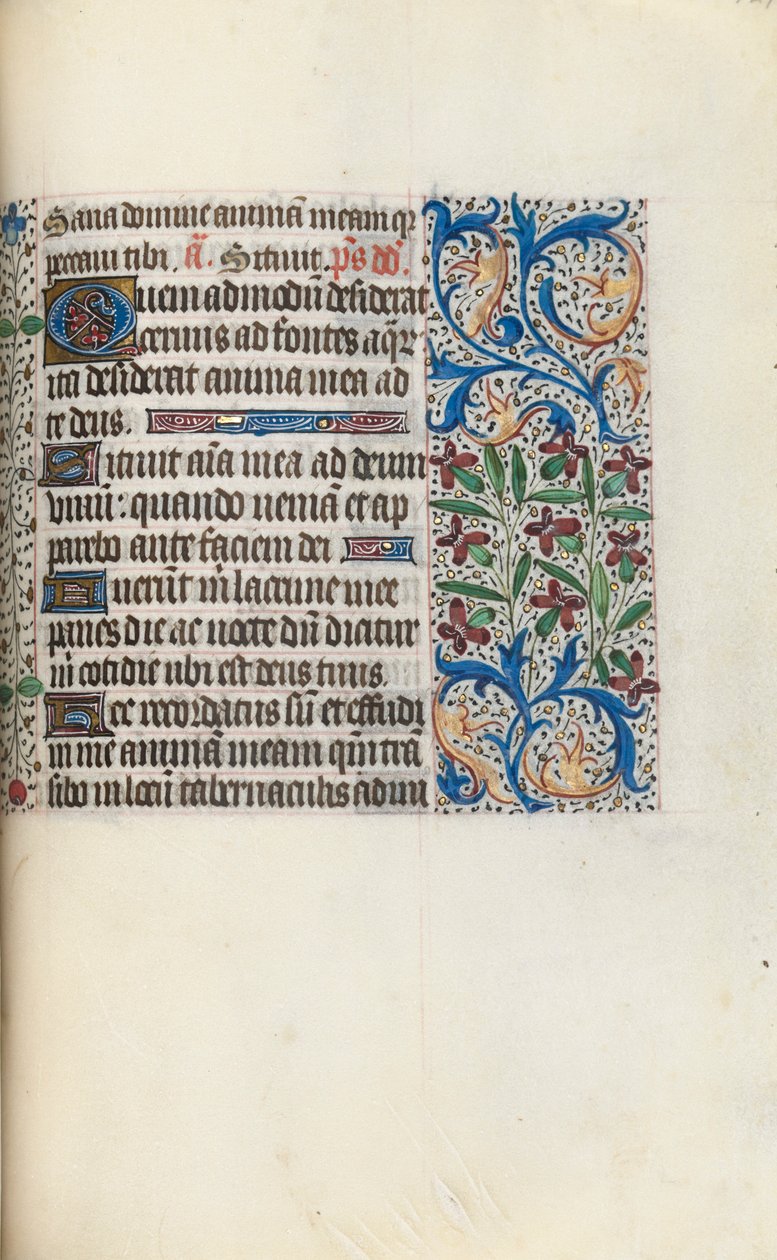 Sana domine animā meam qr
peccaui tibi. ā. Sitiuit. p̄s dd̄.
Quemadmodū desiderat
ceruus ad fontes aq̄ꝝ
ita desiderat anima mea ad
te deus.
Sitiuit aīa mea ad deum
viuū: quando ueniā et ap
parebo ante faciem dei
Fuerūt m̄ lacrime mee
panes die ac nocte dū dicitur
m̄ cotidie ubi est deus tuus.
Hec recordatus sū et effudi
in me animā meam qm̄ trā
sibo in locū tabernaculis admi